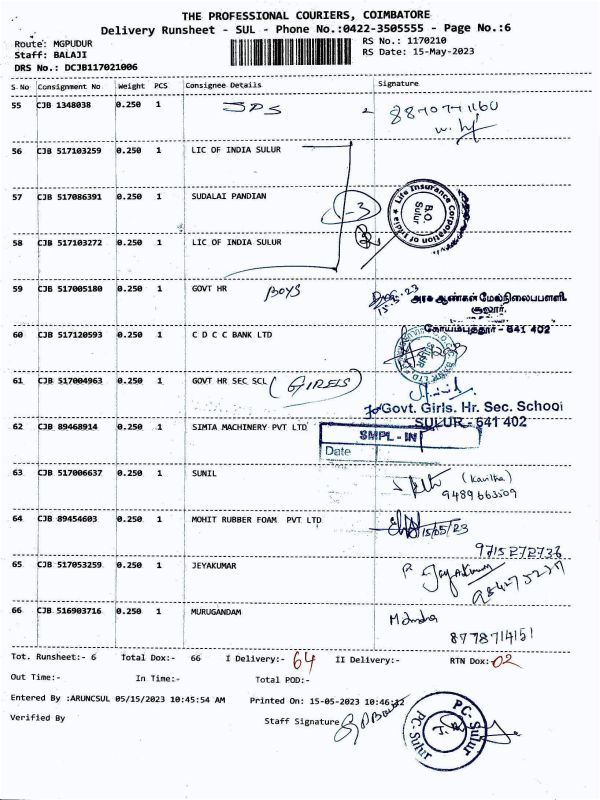 THE PROFESSIONAL COURIERS, COIMBATORE
Delivery Runsheet - SUL - Phone No.:0422-3505555 - Page No.:6
Route: MGPUDUR
Staff: BALAJI
DRS No.: DCJB117021006
RS No.: 1170210
RS Date: 15-May-2023
S.No Consignment No Weight PCS Consignee Details Signature
55 CJB 1348038 0.250 1 8870771160
56 CJB 517103259 0.250 1 LIC OF INDIA SULUR
57 CJB 517086391 0.250 1 SUDALAI PANDIAN -3
Life Insurance Corporation of India
B.O. Sulur
58 CJB 517103272 0.250 1 LIC OF INDIA SULUR
59 CJB 517005180 0.250 1 GOVT HR BOYS
அரசு ஆண்கள் மேல்நிலைபபளளி
சூலூர்.
கோயம்புத்தூர் - 641 402
60 CJB 517120593 0.250 1 C D C C BANK LTD
61 CJB 517004963 0.250 1 GOVT HR SEC SCL (GIRELS)
Govt. Girls. Hr. Sec. School
SULUR - 641 402
62 CJB 89468914 0.250 1 SIMTA MACHINERY PVT LTD
SMPL - IN
Date
63 CJB 517006637 0.250 1 SUNIL (Kavitha)
9489663509
64 CJB 89454603 0.250 1 MOHIT RUBBER FOAM PVT LTD 15/05/23
9715272736
65 CJB 517053259 0.250 1 JEYAKUMAR
66 CJB 516903716 0.250 1 MURUGANDAM
8778714151
Tot. Runsheet:- 6 Total Dox:- 66 I Delivery:- 64 II Delivery:- RTN Dox:- 02
Out Time:- In Time:- Total POD:-
Entered By :ARUNCSUL 05/15/2023 10:45:54 AM Printed On: 15-05-2023 10:46:12
Verified By Staff Signature
PC-Sulur
PC-Sulur